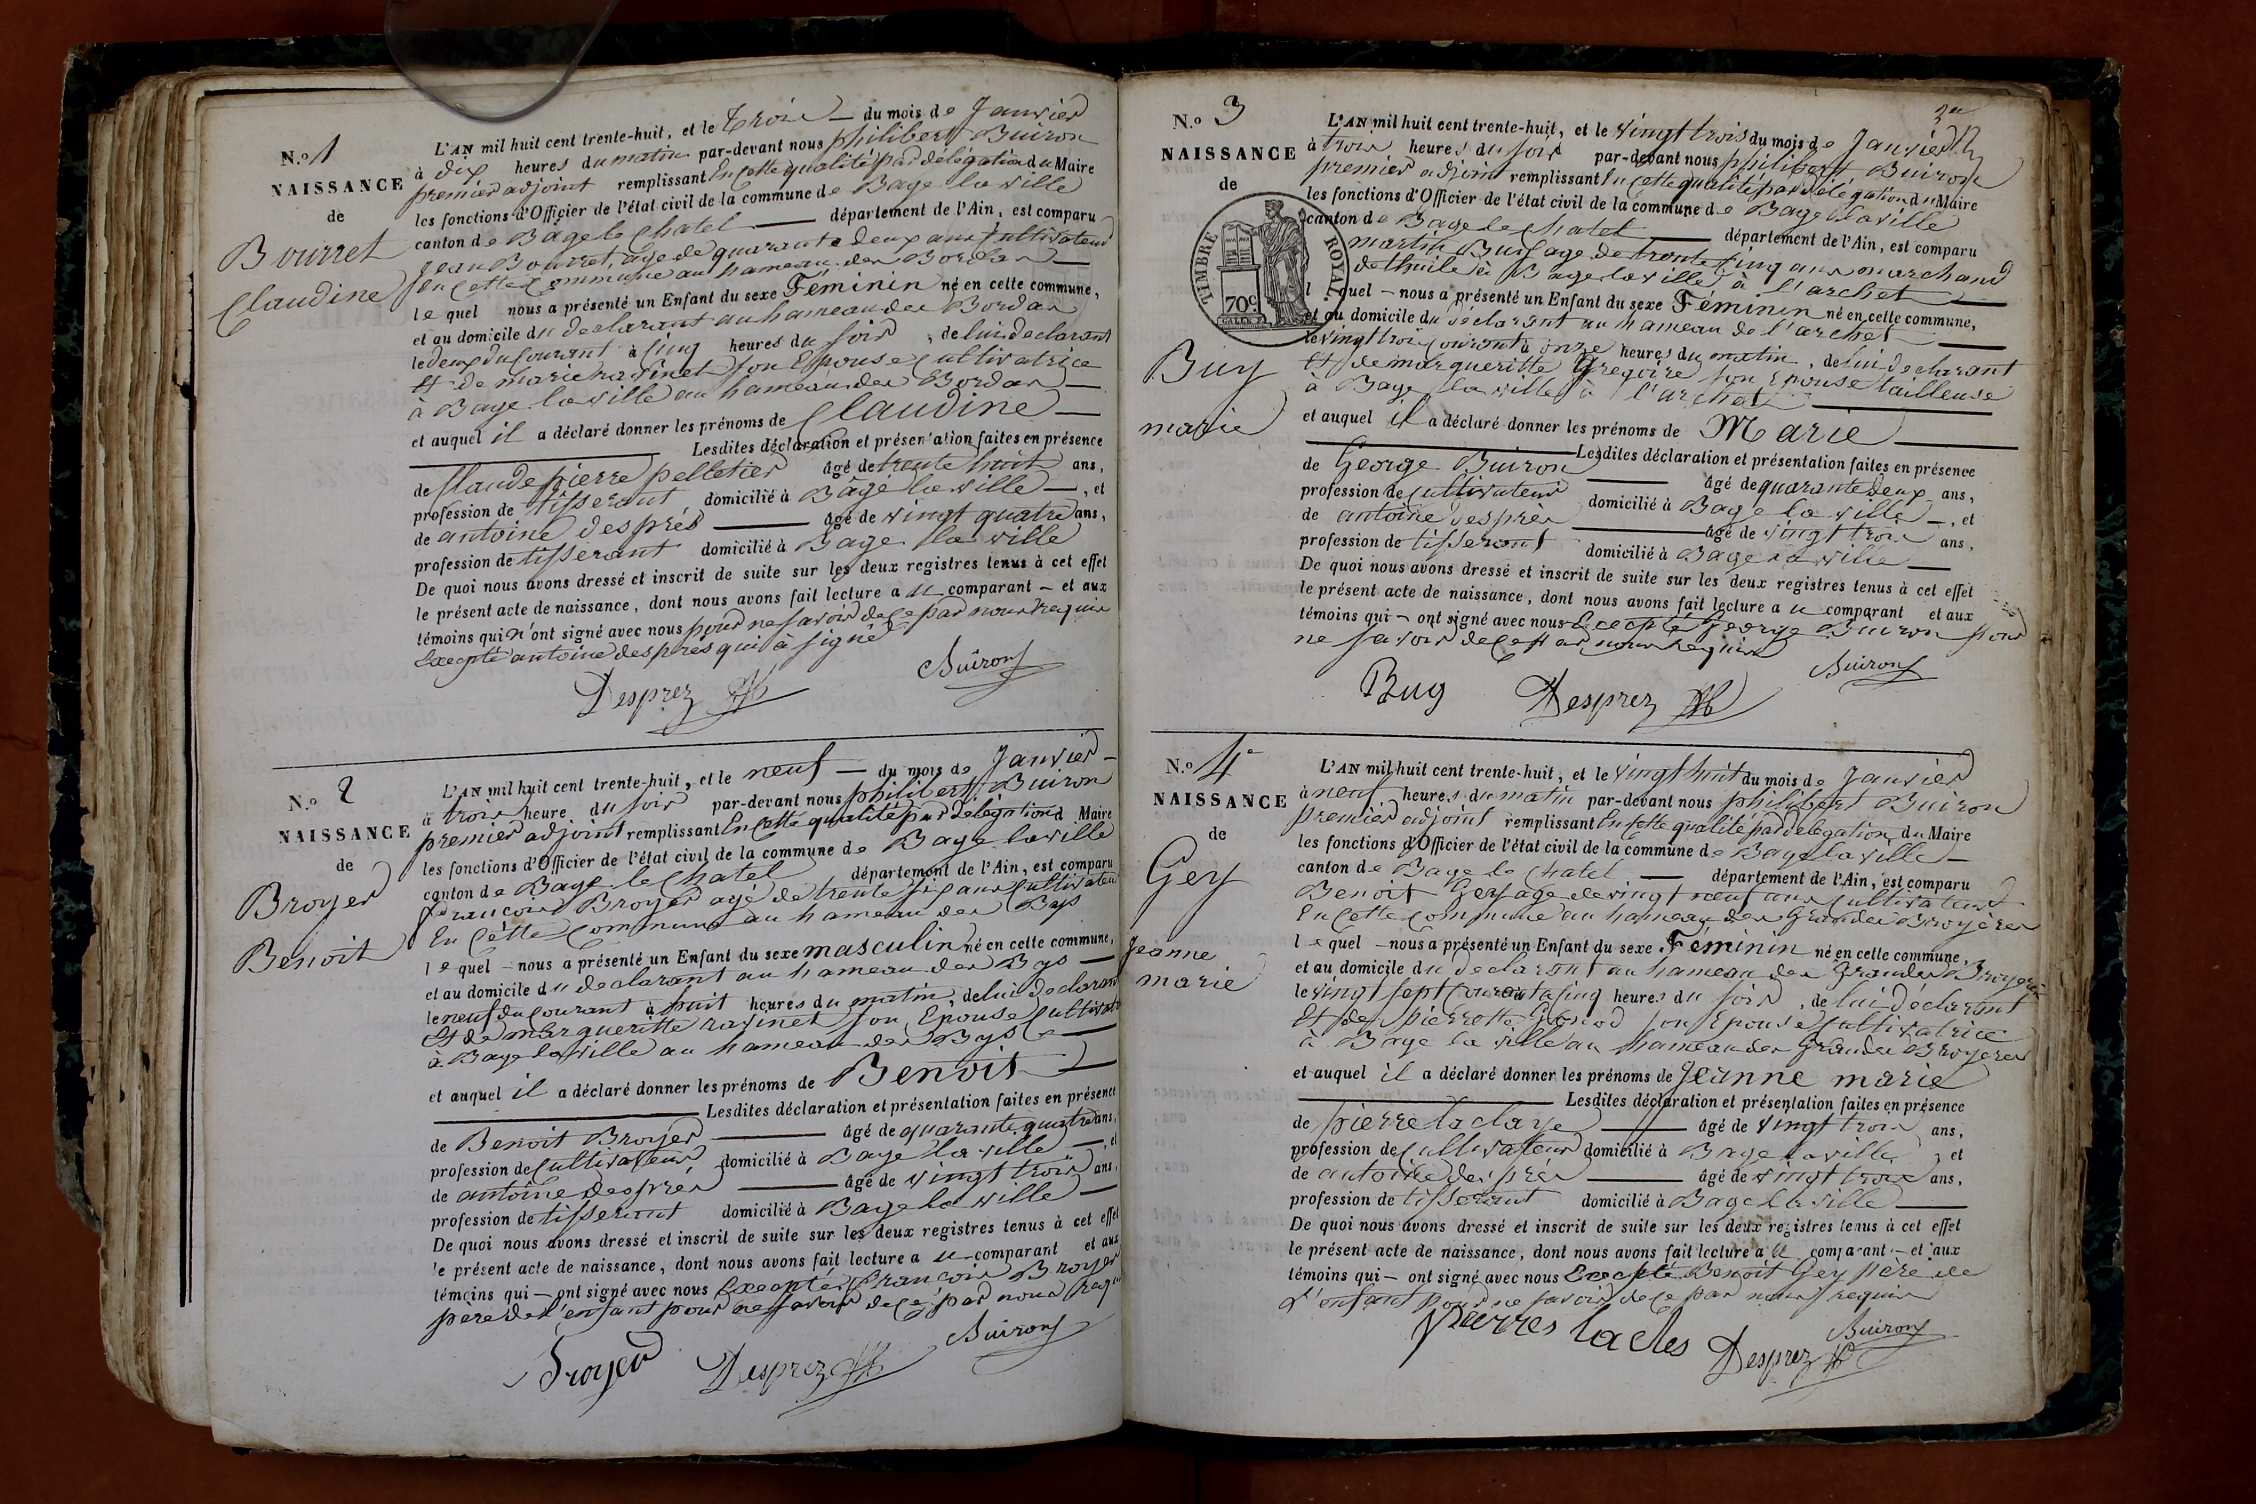 N.o 1
NAISSANCE
de
Bourret
Claudine
L'AN mil huit cent trente-huit, et le trois — du mois de Janvier
à dix heures du matin par-devant nous philibert Buiron
premier adjoint remplissant En cette qualité par délégation du Maire
les fonctions d'Officier de l'état civil de la commune de Bage la ville
canton de Bage le Chatel — département de l'Ain, est comparu
Jean Bourret, age de quarante deux ans Cultivateur
En cette Commune au hameau des Bordes —
le quel nous a présenté un Enfant du sexe Féminin né en cette commune,
et au domicile du declarant au hameau des Bordes
le deux du Courant à Cinq heures du soir, de lui declarant
Et de marie ravinet son Epouse Cultivatrice
à Bage la ville au hameau des Bordes —
et auquel il a déclaré donner les prénoms de Claudine —
Lesdites déclaration et présentation faites en présence
de Claude pierre pelletier âgé de trente huit ans,
profession de tisserant domicilié à Bâgé la ville —, et
de antoine després — âgé de vingt quatre ans,
profession de tisserant domicilié à Bage la ville
De quoi nous avons dressé et inscrit de suite sur les deux registres tenus à cet effet
le présent acte de naissance, dont nous avons fait lecture au comparant — et aux
témoins qui n'ont signé avec nous pour ne savoir de ce par nous requis
Excepté antoine despres qui à signé
Desprez Buiron
N.o 2
NAISSANCE
de
Broyer
Benoit
L'AN mil huit cent trente-huit, et le neuf — du mois de Janvier —
à trois heure du soir par-devant nous philibert Buiron
premier adjoint remplissant En cette qualité par délégation d Maire
les fonctions d'Officier de l'état civil de la commune de Bage la ville
canton de Bage le Chatel département de l'Ain, est comparu
François Broyer agé de trente six ans Cultivateur
En Cette Commune au hameau des Bys
le quel — nous a présenté un Enfant du sexe masculin né en cette commune,
et au domicile du declarant au hameau des Bys —
le neuf du courant à huit heures du matin, de lui declarant
Et de margueritte ravinet son Epouse Cultivat
à Bage la ville au hameau des Bys —
et auquel il a déclaré donner les prénoms de Benoit —
Lesdites déclaration et présentation faites en présence
de Benoit Broyer — âgé de quarante quatre ans,
profession de Cultivateur domicilié à Bage la ville —, et
de antoine després — âgé de vingt trois ans,
profession de tisserant domicilié à Bage la ville —
De quoi nous avons dressé et inscrit de suite sur les deux registres tenus à cet effet
le présent acte de naissance, dont nous avons fait lecture au comparant et aux
témoins qui — ont signé avec nous Excepté François Broyer
père de l'enfant pour ne savoir de ce par nous requ
Broyer Desprez Buiron
N.o 3
NAISSANCE
de
TIMBRE ROYAL.
70c
Buy
marie
L'AN mil huit cent trente-huit, et le vingt trois du mois de Janvier
à trois heures du soir par-devant nous philibert Buiron
premier adjoint remplissant En cette qualité par délégation du Maire
les fonctions d'Officier de l'état civil de la commune de Bage la ville
canton de Bage le Chatel — département de l'Ain, est comparu
martin Buy age de trente Cinq ans marchand
de thuile à Bage la ville à l'archet —
l quel — nous a présenté un Enfant du sexe Féminin né en cette commune,
et au domicile du déclarant au hameau de l'archet —
le vingt trois Courant à onze heures du matin, de lui declarant
Et de margueritte Gregoire son Epouse tailleuse
à Bage la ville à l'archet —
et auquel il a déclaré donner les prénoms de Marie —
Lesdites déclaration et présentation faites en présence
de George Buiron — âgé de quarante deux ans,
profession de Cultivateur domicilié à Bage la ville —, et
de antoine desprès — âgé de vingt trois ans,
profession de tisserant domicilié à Bage la ville —
De quoi nous avons dressé et inscrit de suite sur les deux registres tenus à cet effet
le présent acte de naissance, dont nous avons fait lecture au comparant et aux
témoins qui — ont signé avec nous Excepté George Buiron pour
ne savoir de ce par nous requis
Bug Desprez Buiron
N.o 4
NAISSANCE
de
Gey
Jeanne
marie
L'AN mil huit cent trente-huit, et le vingt huit du mois de Janvier
à neuf heures du matin par-devant nous philibert Buiron
premier adjoint remplissant En Cette qualité par delegation du Maire
les fonctions d'Officier de l'état civil de la commune de Bage la ville —
canton de Bage le Chatel — département de l'Ain, est comparu
Benoit Gey age de vingt neuf ans Cultivateur
En Cette Commune au hameau des Grandes Broyères
le quel — nous a présenté un Enfant du sexe Féminin né en cette commune,
et au domicile du declarant au hameau des Grandes Broyeres
le vingt sept Courant à Cinq heures du soir, de lui déclarant
Et de pierrette Gonod son Epouse Cultivatrice
à Bage la ville au hameau des Grandes Broyeres
et auquel il a déclaré donner les prénoms de Jeanne marie
Lesdites déclaration et présentation faites en présence
de pierre la claye — âgé de vingt trois ans,
profession de Cultivateur domicilié à Bage la ville, et
de antoine després — âgé de vingt trois ans,
profession de tisserant domicilié à Bage la ville —
De quoi nous avons dressé et inscrit de suite sur les deux registres tenus à cet effet
le présent acte de naissance, dont nous avons fait lecture au comparant — et aux
témoins qui — ont signé avec nous Excepté Benoit Gey père de
L'enfant pour ne savoir de ce par nous requis
Desprez Buiron